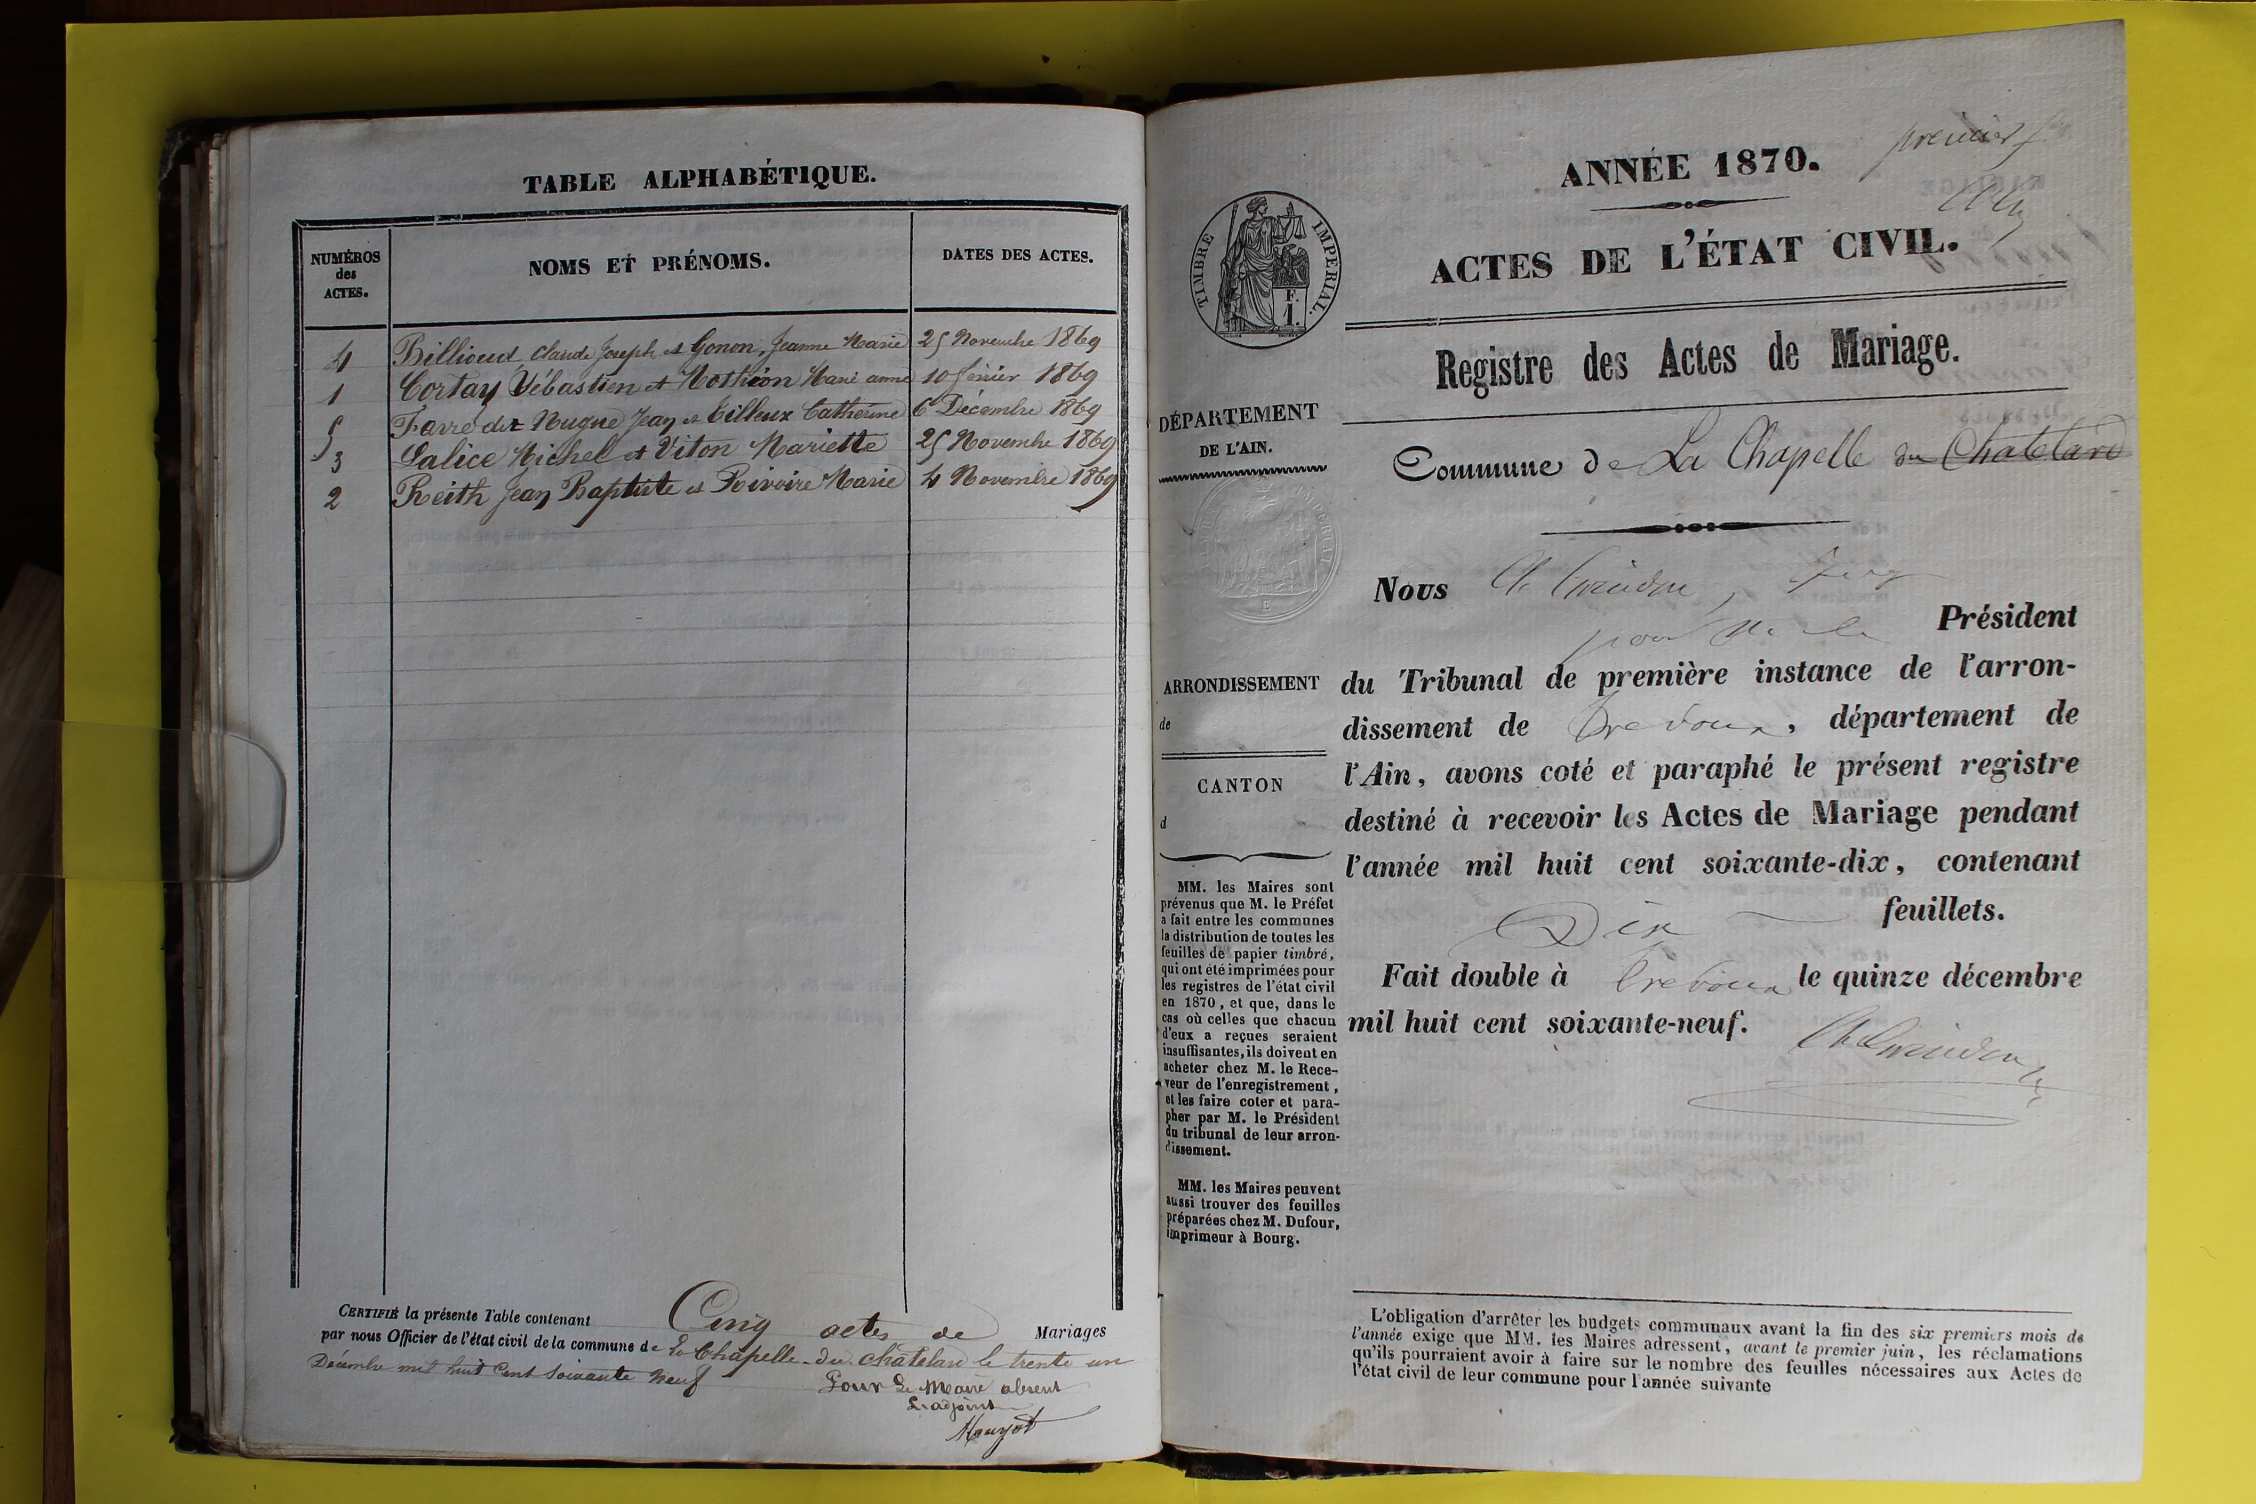 TABLE ALPHABÉTIQUE.
NUMÉROS
des
ACTES.
NOMS ET PRÉNOMS.
DATES DES ACTES.
4 Billioud Claude Joseph et Gonon, Jeanne Marie 25 Novembre 1869
1 Cortay Sébastien et Marie anne 10 février 1869
5 Favre dit Nugue Jean et Tilleux Catherine 6 Décembre 1869
3 Salice Michel et Viton Mariette 25 Novembre 1869
2 Reith Jean Baptiste et Poivoire Marie 4 Novembre 1869
CERTIFIÉ la présente Table contenant Cinq actes de Mariages
par nous Officier de l'état civil de la commune de La Chapelle du Châtelard le trente un
Décembre mil huit Cent Soixante neuf
Pour Le Maire absent
L'adjoint
premier
ANNÉE 1870.
ACTES DE L'ÉTAT CIVIL.
TIMBRE IMPERIAL.
F.
1.
Registre des Actes de Mariage.
DÉPARTEMENT
DE L'AIN.
Commune de La Chapelle du Chatelard
Nous
Président
ARRONDISSEMENT
de
CANTON
d
du Tribunal de première instance de l'arron-
dissement de Trevoux, département de
l'Ain, avons coté et paraphé le présent registre
destiné à recevoir les Actes de Mariage pendant
l'année mil huit cent soixante-dix, contenant
Dix feuillets.
Fait double à Trevoux le quinze décembre
mil huit cent soixante-neuf.
MM. les Maires sont
prévenus que M. le Préfet
a fait entre les communes
la distribution de toutes les
feuilles de papier timbré,
qui ont été imprimées pour
les registres de l'état civil
en 1870, et que, dans le
cas où celles que chacun
d'eux a reçues seraient
insuffisantes, ils doivent en
acheter chez M. le Rece-
veur de l'enregistrement,
et les faire coter et para-
pher par M. le Président
du tribunal de leur arron-
dissement.
MM. les Maires peuvent
aussi trouver des feuilles
préparées chez M. Dufour,
imprimeur à Bourg.
L'obligation d'arrêter les budgets communaux avant la fin des six premiers mois de
l'année exige que MM. les Maires adressent, avant le premier juin, les réclamations
qu'ils pourraient avoir à faire sur le nombre des feuilles nécessaires aux Actes de
l'état civil de leur commune pour l'année suivante